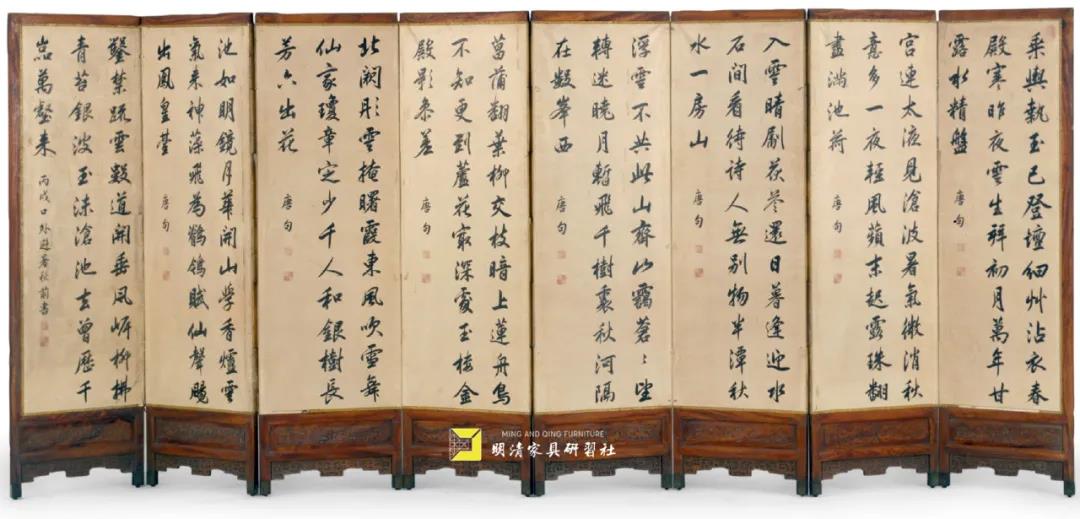 乘輿執玉已登壇細艸沾衣春
殿寒昨夜雲生拜初月萬年甘
露水精盤
唐句
宮連太液見滄波暑氣微消秋
意多一夜輕風蘋末起露珠翻
盡滿池荷
唐句
入雲晴劚茯苓還日暮逢迎水
石間看待詩人無別物半潭秋
水一房山
唐句
浮雲不共此山齊山靄蒼〻望
轉迷曉月暫飛千樹裏秋河隔
在數峯西
唐句
菖蒲翻葉柳交枝暗上蓮舟鳥
不知更到蘆花最深處玉樓金
殿影參差
唐句
北闕彤雲掩曙霞東風吹雪舞
仙家瓊章定少千人和銀樹長
芳六出花
唐句
池如明鏡月華開山學香爐雲
氣來神藻飛為鶺鴒賦仙聲颺
出鳳皇臺
唐句
鑿禁疏雲數道開垂風岸柳拂
青苔銀波玉沫滄池去曾歷千
嵓萬壑來
丙戌口外避暑秋前書
MING AND QING FURNITURE
明清家具研習社